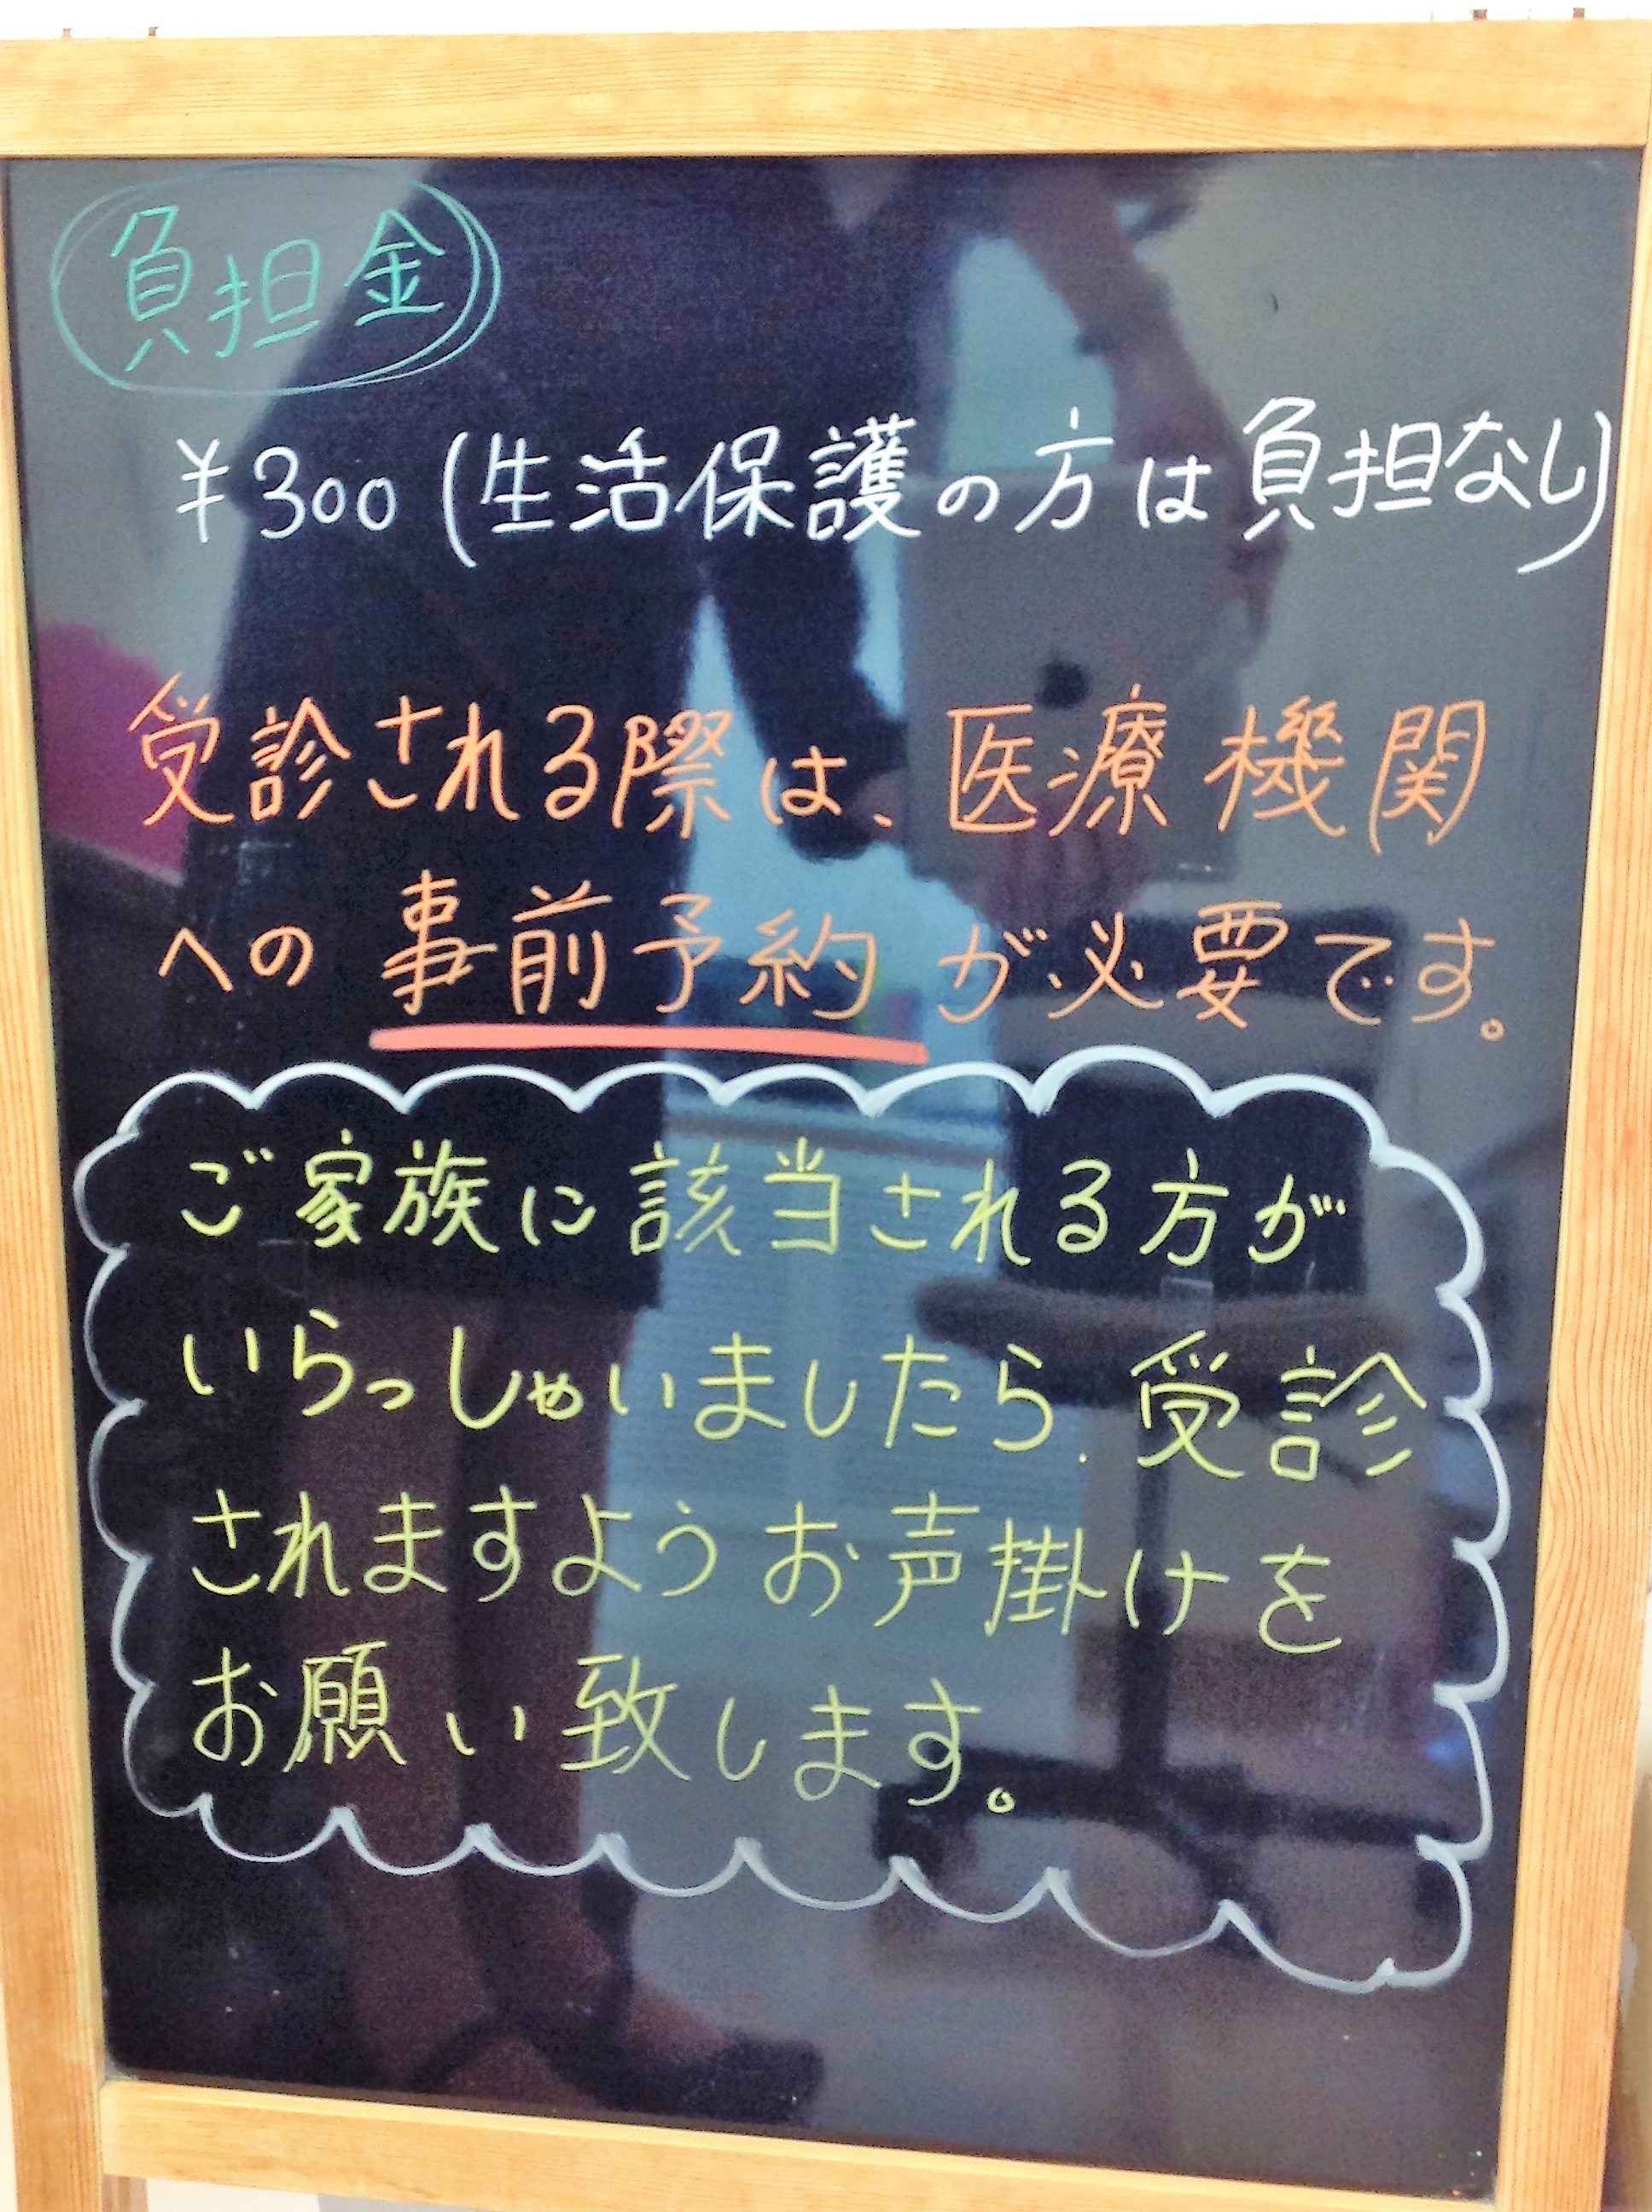 負担金
¥300(生活保護の方は負担なし)
受診される際は、医療機関
への事前予約が必要です。
ご家族に該当される方が
いらっしゃいましたら、受診
されますようお声掛けを
お願い致します。